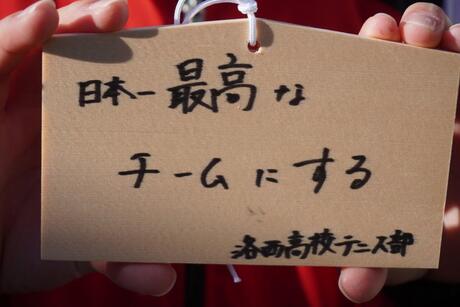 日本一最高な
チームにする
洛西高校テニス部